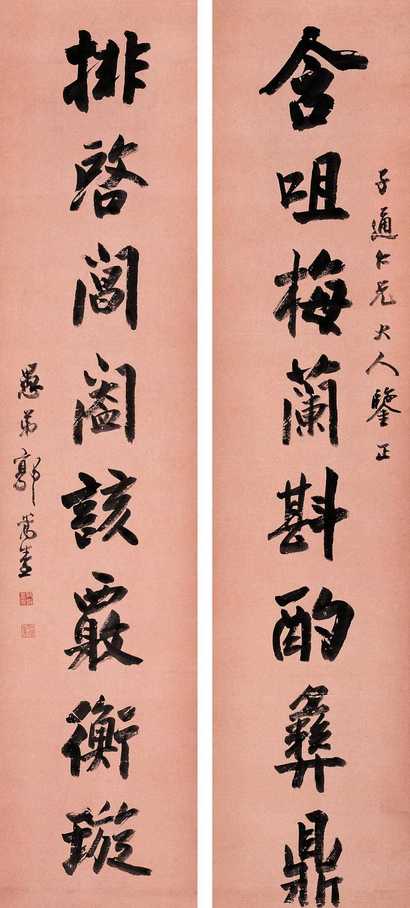 子通仁兄大人鑒正
含咀梅蘭斟酌彝鼎
排啓閶闔該覈衡璇
愚弟郭嵩燾